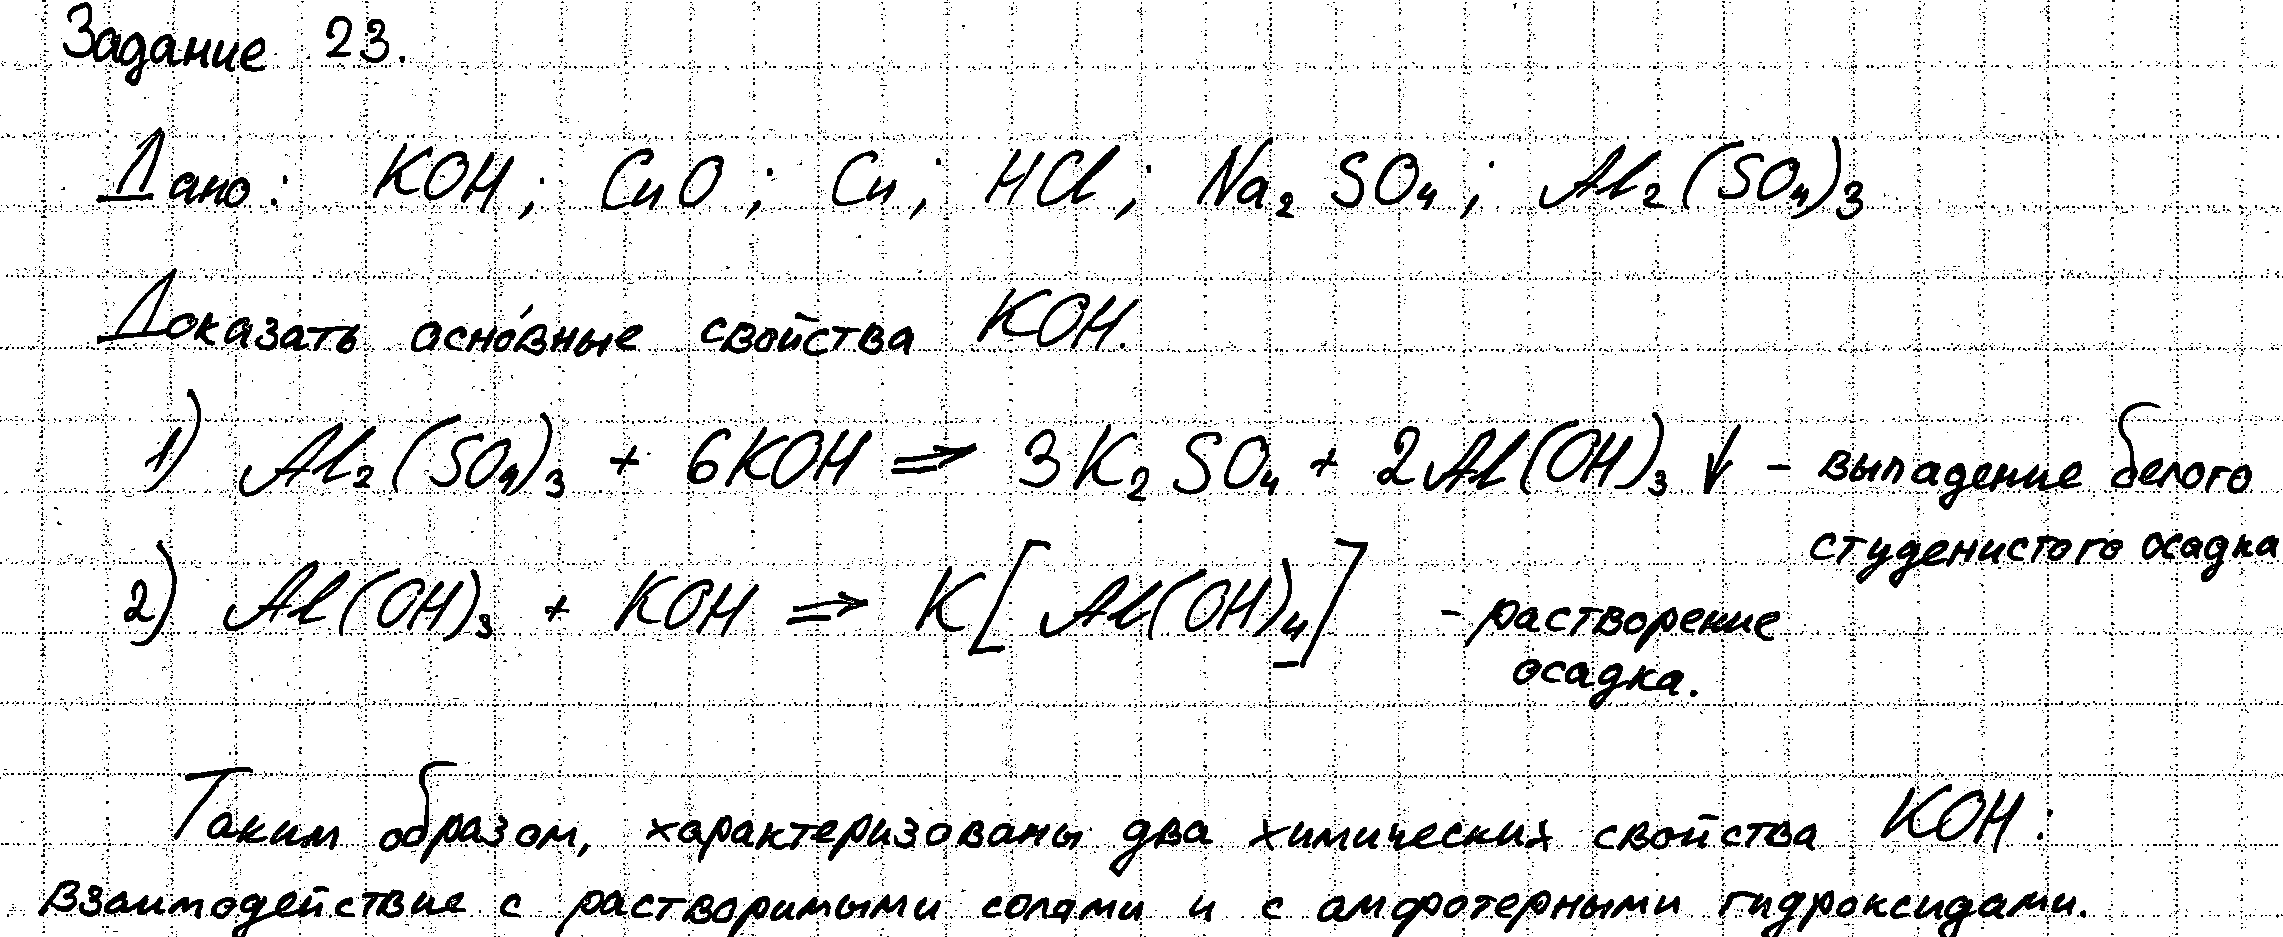 Задание 23.
Дано: KOH; CuO; Cu; HCl; Na₂SO₄; Al₂(SO₄)₃
Доказать осно́вные свойства KOH.
1) Al₂(SO₄)₃ + 6KOH ⇒ 3K₂SO₄ + 2Al(OH)₃↓ - выпадение белого
студенистого осадка
2) Al(OH)₃ + KOH ⇒ K[Al(OH)₄] - растворение
осадка.
Таким образом, характеризованы два химических свойства KOH:
взаимодействие с растворимыми солями и с амфотерными гидроксидами.